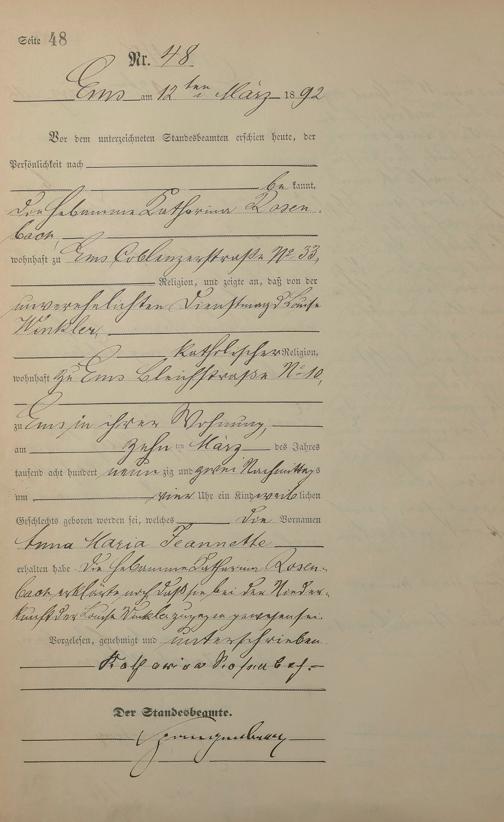 Seite 48
Nr. 48
Ems am 12ten März 1892
Vor dem unterzeichneten Standesbeamten erschien heute, der
Persönlichkeit nach
be kannt,
die Hebamme Katharina Rosen-
bach
wohnhaft zu Ems Coblenzerstraße No 33,
Religion, und zeigte an, daß von der
unverehelichten Dienstmagd Louise
Winkler,
katholischer Religion,
wohnhaft zu Ems Bleichstraße No 10,
zu Ems in ihrer Wohnung,
am zehn ten März des Jahres
tausend acht hundert neun zig und zwei Nachmittags
um vier Uhr ein Kind weib lichen
Geschlechts geboren worden sei, welches die Vornamen
Anna Maria Jeannette
erhalten habe Die Hebamme Katharina Rosen-
bach erklärte noch daß sie bei der Nieder-
kunft der Louise Winkler zugegen gewesen sei.
Vorgelesen, genehmigt und unterschrieben
Katharina Rosenbach.
Der Standesbeamte.
Spangenberg